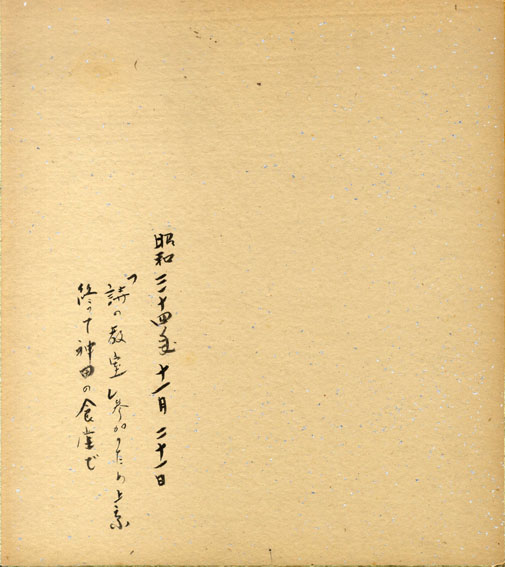 昭和三十四年 十一月 二十一日
「詩の教室」参加のため上京
終って神田の食堂で